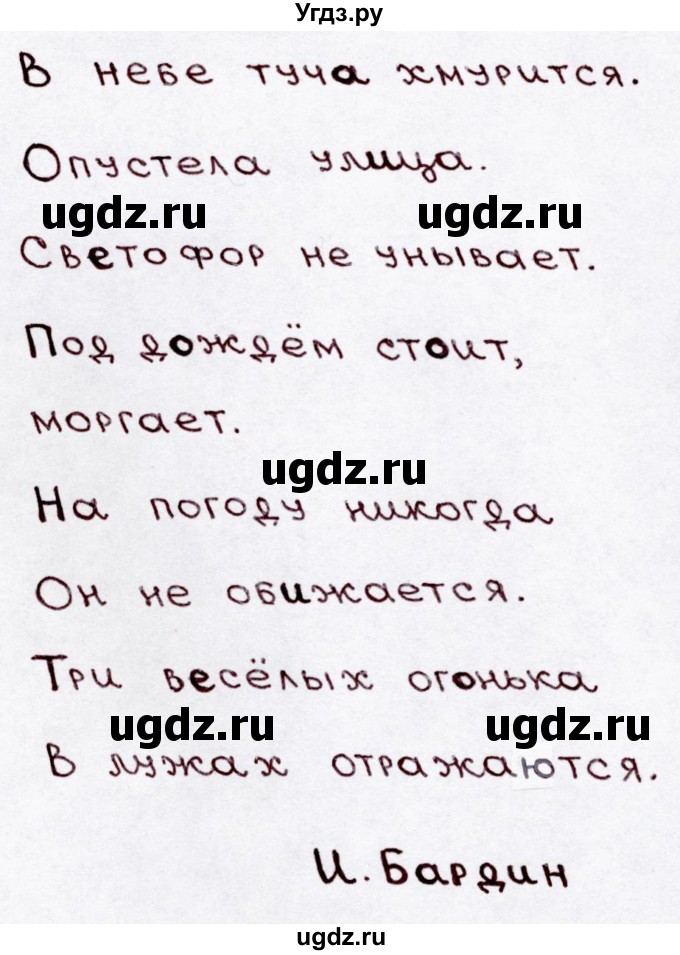 Угдз.ру
В небе туча хмурится.
Опустела улица.
ugdz.ru ugdz.ru
Светофор не унывает.
Под дождём стоит,
моргает.
ugdz.ru
На погоду никогда
Он не обижается.
Три весёлых огонька
ugdz.ru ugdz.ru
В лужах отражаются.
И. Бардин
ugdz.ru